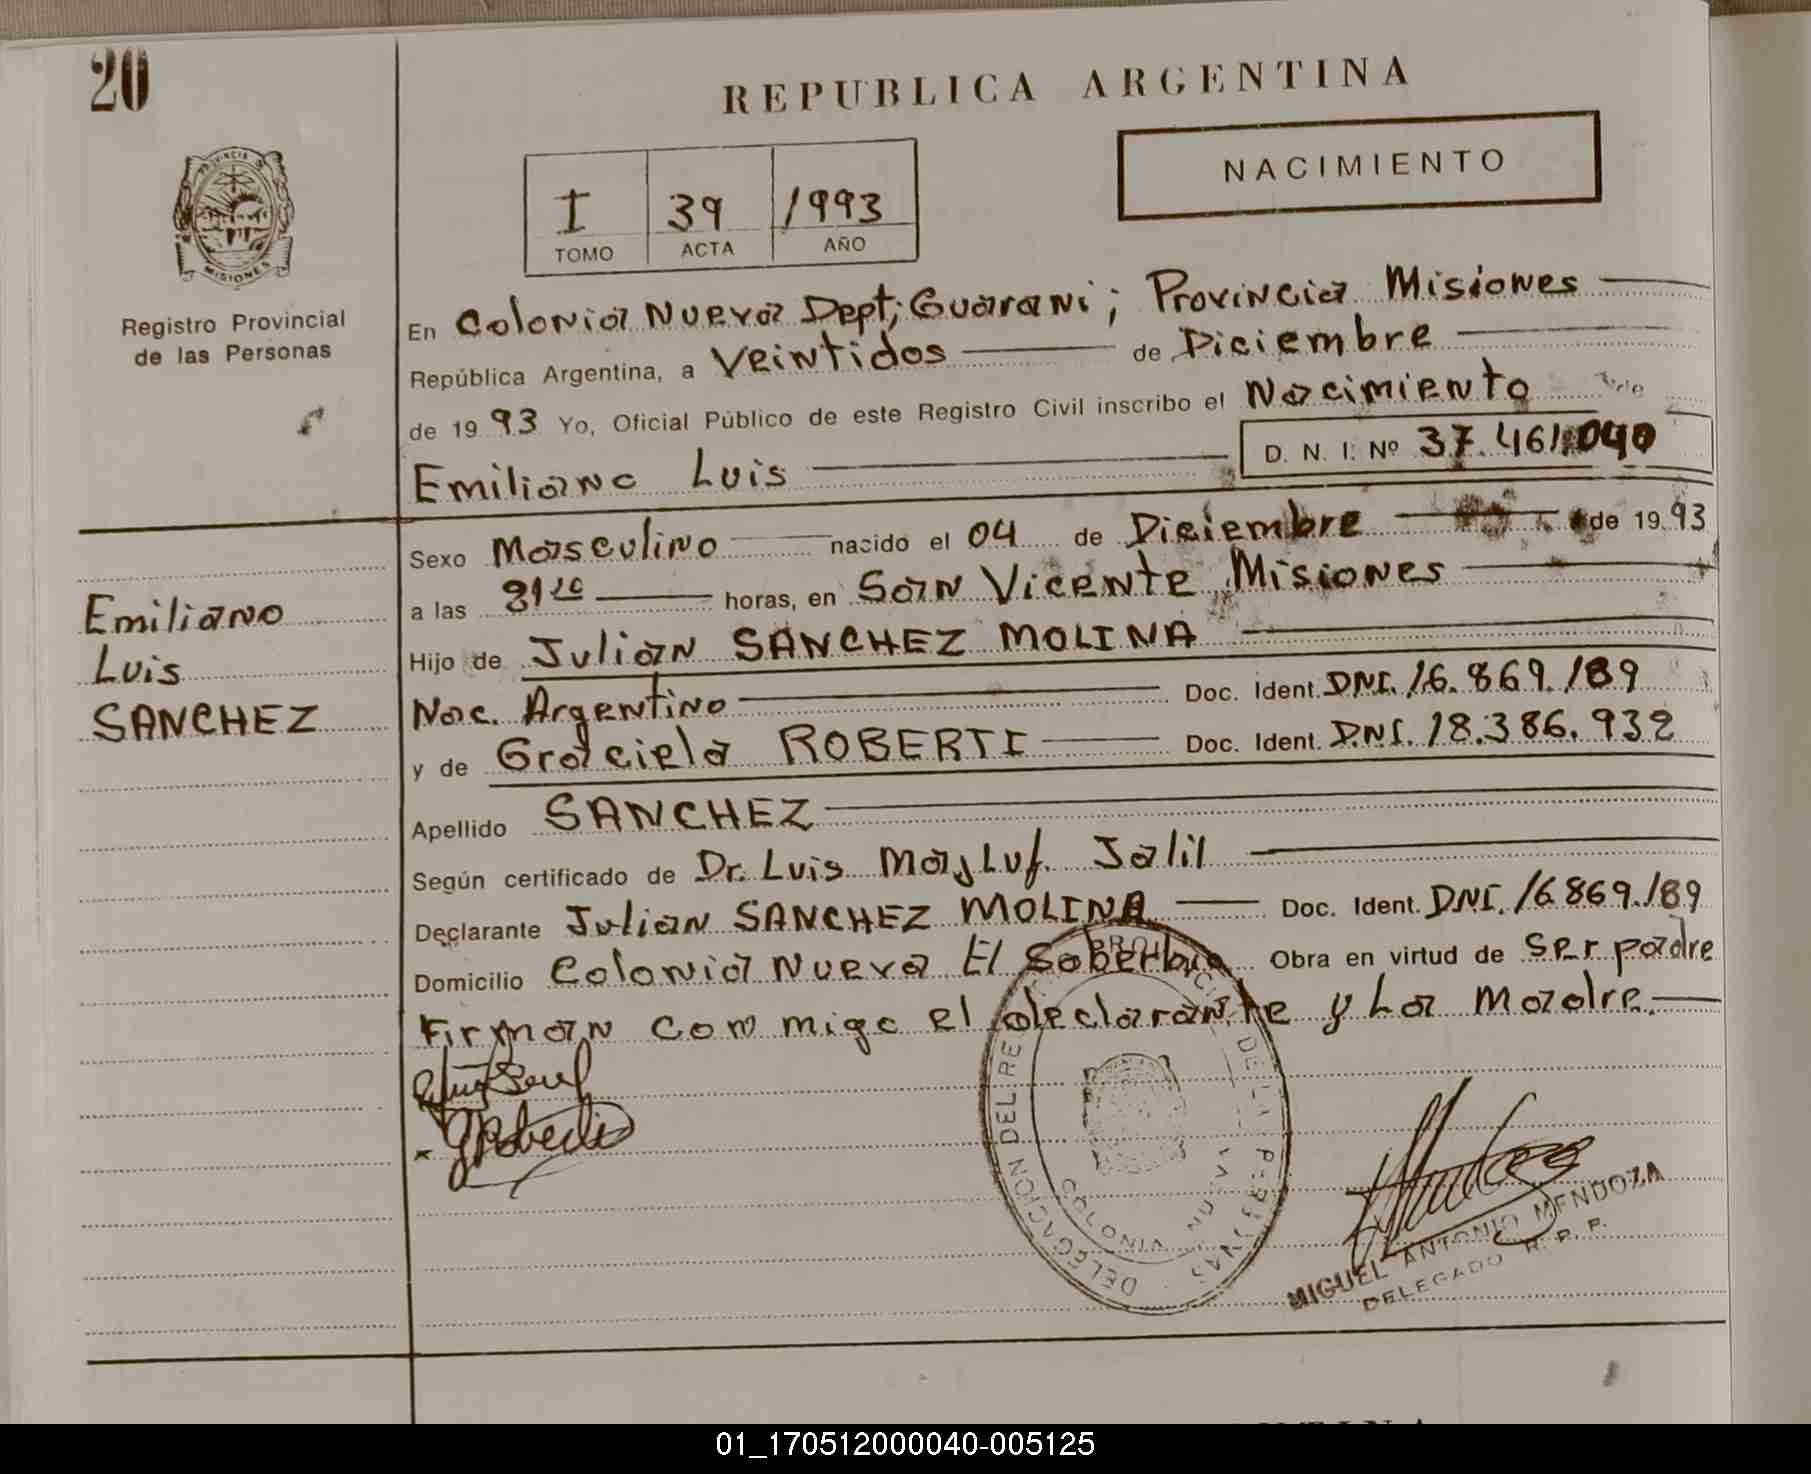 20
REPUBLICA ARGENTINA
NACIMIENTO
I 39 1993
TOMO ACTA AÑO
PROVINCIA D
MISIONES
Registro Provincial
de las Personas
En Colonia Nueva Dept; Guarani; Provincia Misiones
República Argentina, a Veintidos de Diciembre
de 1993 Yo, Oficial Público de este Registro Civil inscribo el Nacimiento
Emiliano Luis D. N. I: Nº 37.461.040
Sexo Masculino nacido el 04 de Diciembre de 1993
a las horas, en San Vicente, Misiones
Hijo de Julian SANCHEZ MOLINA
Nac. Argentino Doc. Ident. DNI. 16.869.189
y de Graciela ROBERTI Doc. Ident. D.N.I. 18.386.932
Apellido SANCHEZ
Según certificado de Dr. Luis Jalil
Declarante Julian SANCHEZ MOLINA Doc. Ident. DNI. 16.869.189
Domicilio Colonia Nueva El Soberbio Obra en virtud de Ser padre
Firman con migo el declarante y La Madre.
Emiliano
Luis
SANCHEZ
DELEGACION DEL RE DE LA PERSONAS
COLONIA
MIGUEL ANTONIO MENDOZA
DELEGADO R. P. P.
01_170512000040-005125